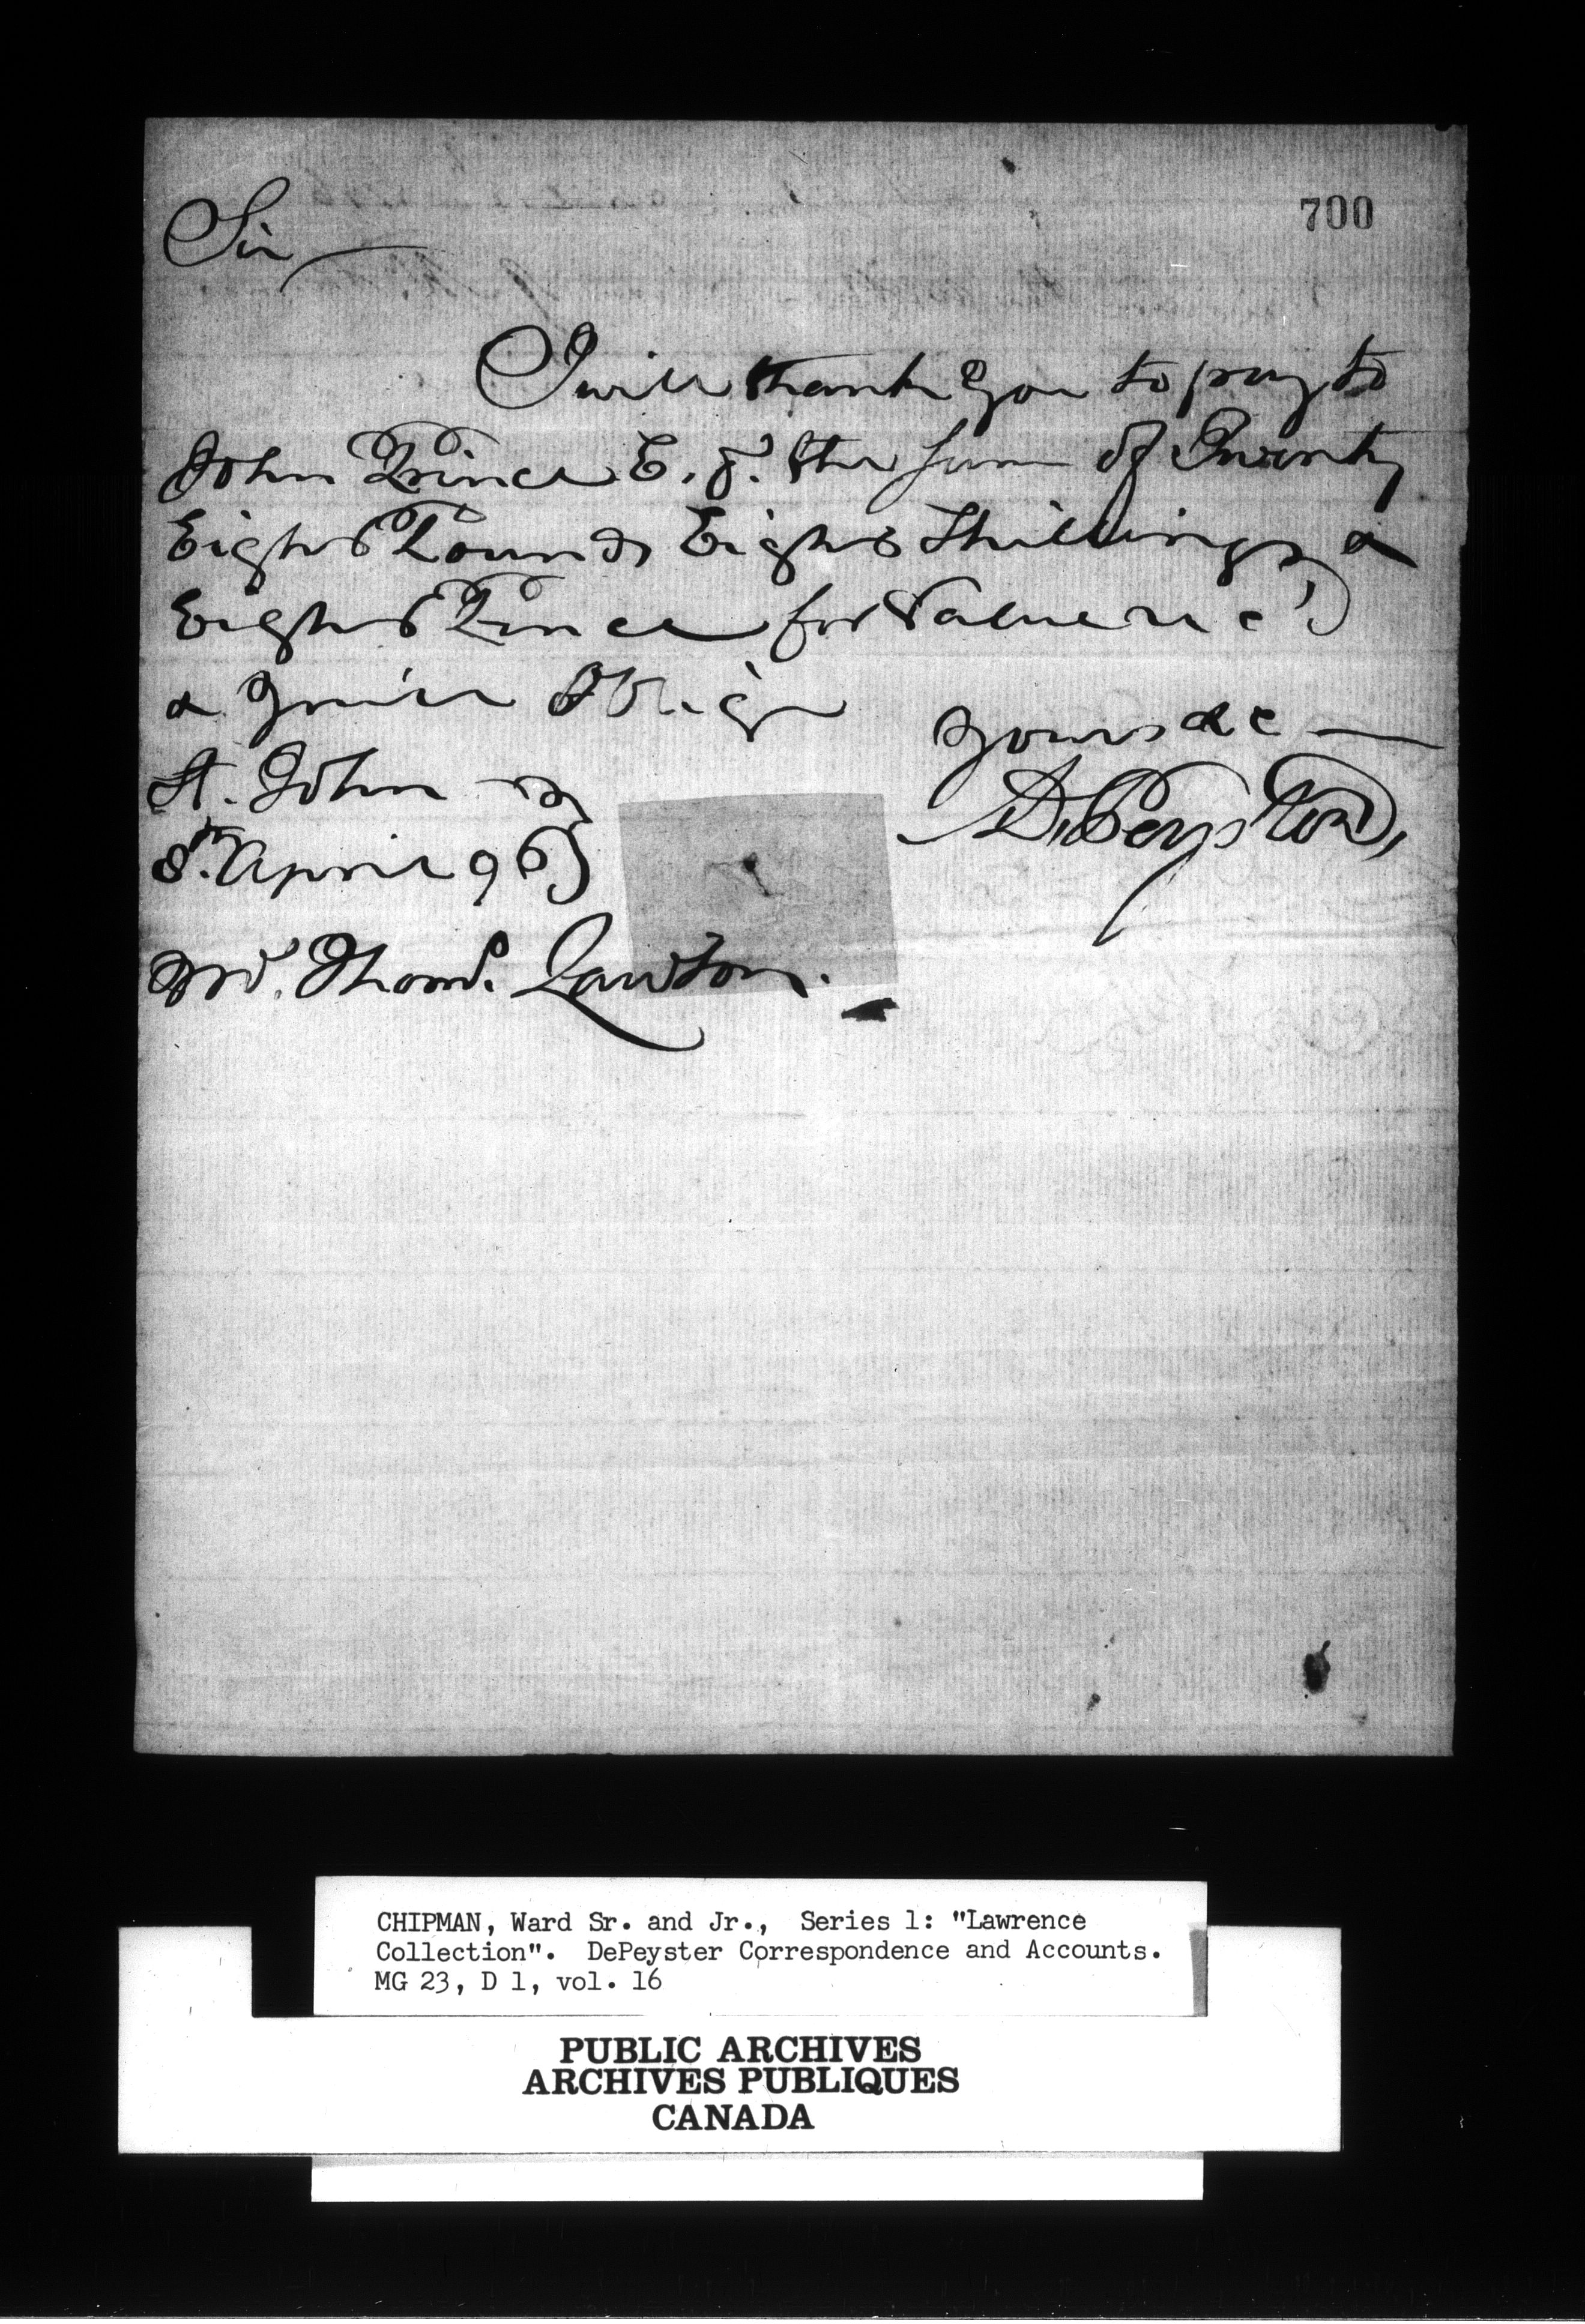 700
Sir
I will thank you to pay to
John Prince E.q.r the sum of Twenty
Eight Pounds Eight Shillings &
Eight Pence for Value rec'd
& you'll Oblige
Yours &c
St. John
8th. April 96
DePeyster,
Mr. Thoms. Lawton.
CHIPMAN, Ward Sr. and Jr., Series 1: "Lawrence
Collection". DePeyster Correspondence and Accounts.
MG 23, D 1, vol. 16
PUBLIC ARCHIVES
ARCHIVES PUBLIQUES
CANADA